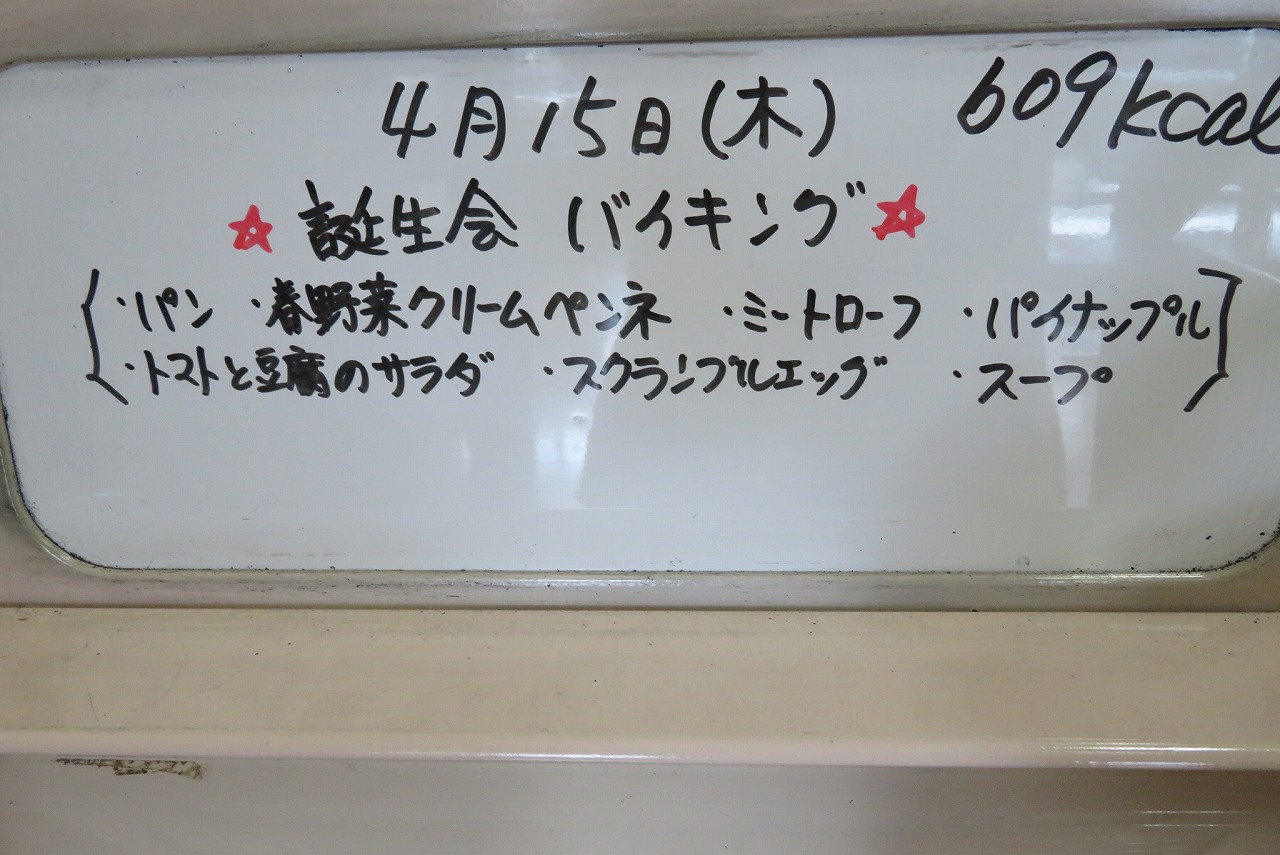 4月15日(木) 609kcal
☆ 誕生会 バイキング ☆
・パン ・春野菜クリームペンネ ・ミートローフ ・パイナップル
・トマトと豆腐のサラダ ・スクランブルエッグ ・スープ